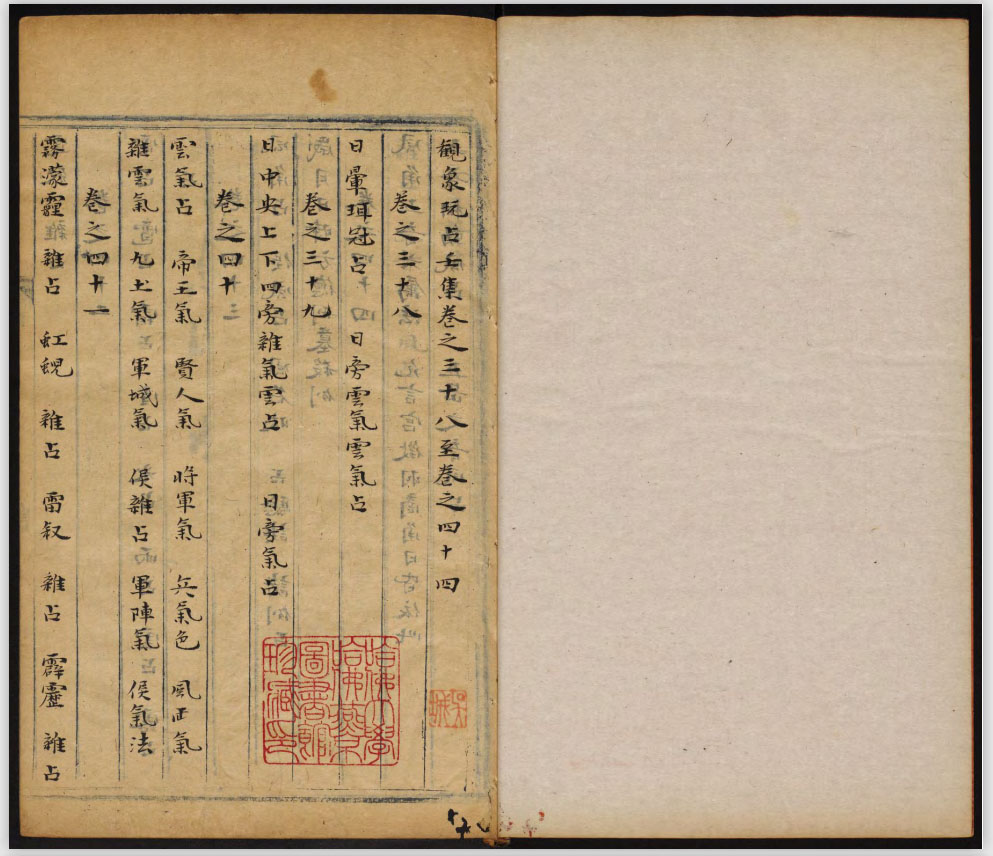 觀象玩占壬集卷之三十八至卷之四十四
卷之三十八
日暈珥冠占 日旁雲氣雲氣占
卷之三十九
日中央上下四旁雜氣雲占 日旁氣占
卷之四十
雲氣占 帝王氣 賢人氣 將軍氣 兵氣色 風雨氣
雜雲氣 九土氣 軍城氣 侯雜占 軍陣氣 侯氣法
卷之四十一
霧濛霾 雜占 虹蜺 雜占 雷叙 雜占 霹靂 雜占
哈佛大學
哈佛燕京
圖書館
珍藏印